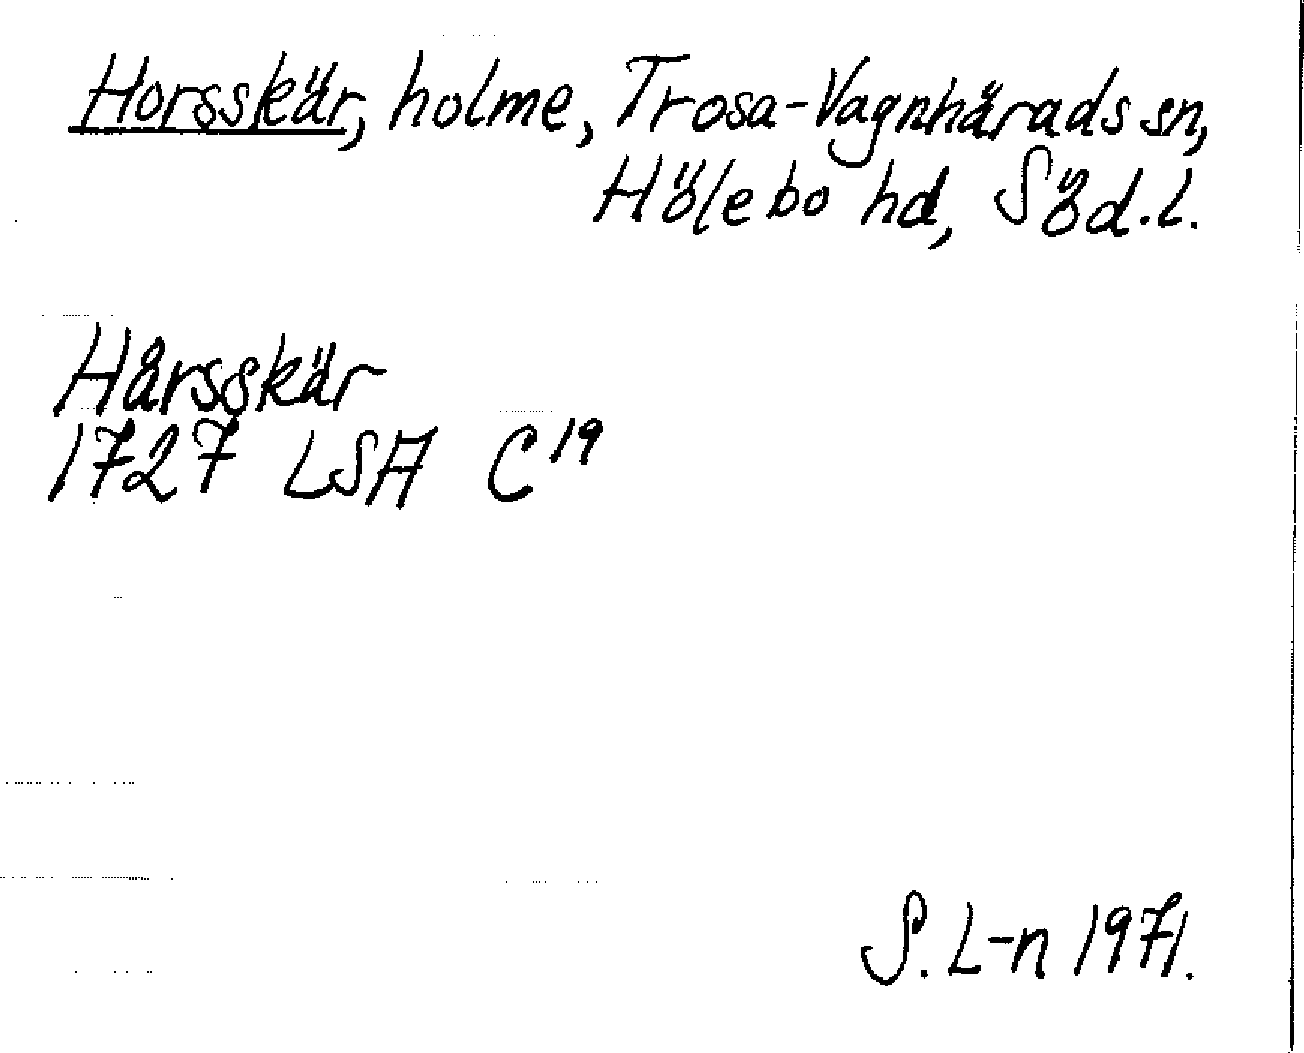 Horsskär, holme, Trosa-Vagnhärads sn,
Hölebo hd, Söd.l.
Hårsskär
1727 LSA C¹⁹
S. L-n 1971.